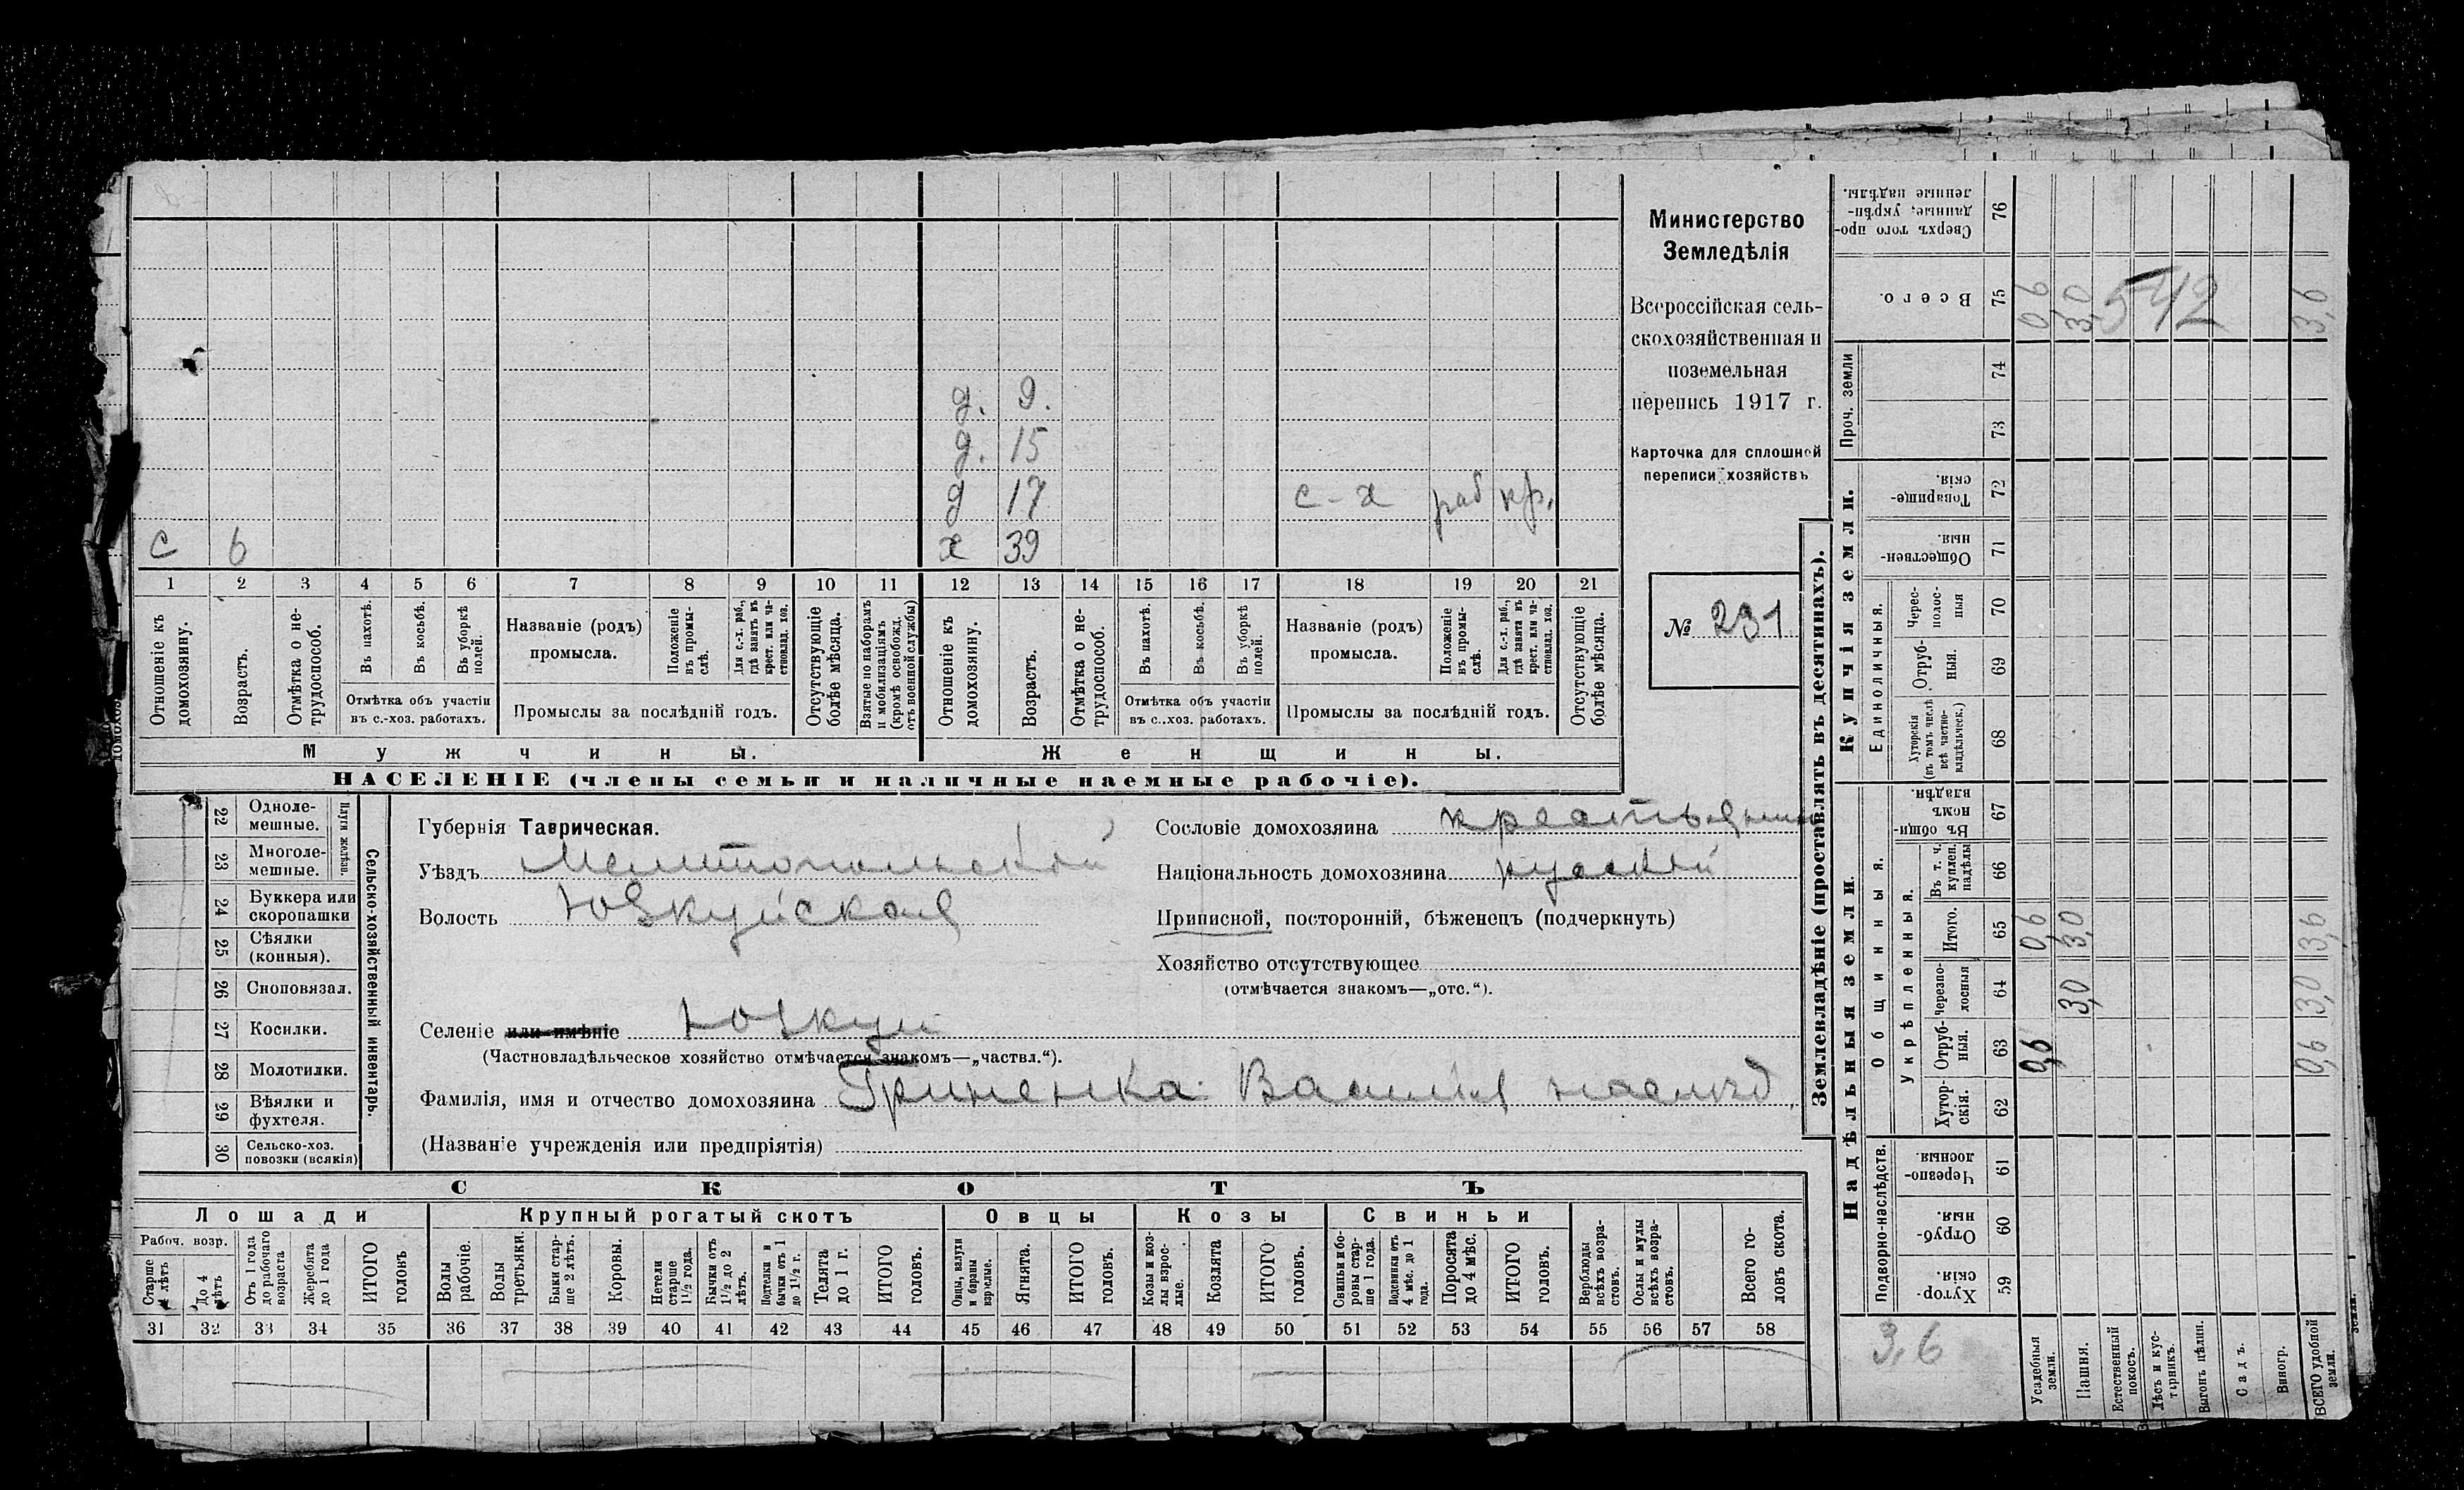 д. 9.
д. 15
д 17 с-х раб кр.
с 6 х 39
1 2 3 4 5 6 7 8 9 10 11 12 13 14 15 16 17 18 19 20 21
Отношеніе къ домохозяину.
Возрастъ.
Отмѣтка о не-
трудоспособ.
Въ пахотѣ.
Въ косьбѣ.
Въ уборкѣ
полей.
Отмѣтка объ участіи
въ с.-хоз. работахъ.
Названіе (родъ)
промысла.
Положеніе
въ промы-
слѣ.
Для с.-х. раб.,
гдѣ занятъ въ
крест. или ча-
стновлад. хоз.
Промыслы за послѣдній годъ.
Отсутствующіе
болѣе мѣсяца.
Взятые по наборамъ
и мобилизаціямъ
(кромѣ освобожд.
отъ военной службы)
Отношеніе къ
домохозяину.
Возрастъ.
Отмѣтка о не-
трудоспособ.
Въ пахотѣ.
Въ косьбѣ.
Въ уборкѣ
полей.
Отмѣтка объ участіи
въ с..хоз. работахъ.
Названіе (родъ)
промысла.
Положеніе
въ промы-
слѣ.
Для с.-х. раб.,
гдѣ занята въ
крест. или ча-
стновлад. хоз.
Промыслы за послѣдній годъ.
Отсутствующіе
болѣе мѣсяца.
Мужчины.
Женщины.
НАСЕЛЕНІЕ (члены семьи и наличные наемные рабочіе).
Министерство
Земледѣлія
Всероссійская сель-
скохозяйственная и
поземельная
перепись 1917 г.
Карточка для сплошной
переписи хозяйствъ
№ 231
22 Одноле-
мешные.
23 Многоле-
мешные.
Плуги желѣзн.
24 Буккера или
скоропашки
25 Сѣялки
(конныя).
26 Сноповязал.
27 Косилки.
28 Молотилки.
29 Вѣялки и
фухтеля.
30 Сельско-хоз.
повозки (всякія)
Сельско-хозяйственный инвентарь.
Губернія Таврическая.
Уѣздъ Мелитопольскій
Волость Юзкуйская
Селеніе или имѣніе Юзкуи
(Частновладѣльческое хозяйство отмѣчается знакомъ—„частвл.“).
Фамилія, имя и отчество домохозяина Гриненка Василія наслѣд.
(Названіе учрежденія или предпріятія)
Сословіе домохозяина крестьянин
Національность домохозяина русскій
Приписной, посторонній, бѣженецъ (подчеркнуть)
Хозяйство отсутствующее
(отмѣчается знакомъ—„отс.“).
СКОТЪ
Лошади
Крупный рогатый скотъ
Овцы
Козы
Свиньи
Рабоч. возр.
Старше
4 лѣтъ
До 4
лѣтъ
Отъ 1 года
до рабочаго
возраста
Жеребята
до 1 года
ИТОГО
головъ
Волы
рабочіе.
Волы
третьяки.
Быки стар-
ше 2 лѣтъ.
Коровы.
Нетели
старше
1½ года.
Бычки отъ
1½ до 2
лѣтъ.
Подтелки и
бычки отъ 1
до 1½ г.
Телята
до 1 г.
ИТОГО
головъ.
Овцы, валухи
и бараны
взрослые.
Ягнята.
ИТОГО
головъ.
Козы и коз-
лы взрос-
лые.
Козлята
ИТОГО
головъ.
Свиньи и бо-
ровы стар-
ше 1 года.
Подсвинки отъ
4 мѣс. до 1
года.
Поросята
до 4 мѣс.
ИТОГО
головъ.
Верблюды
всѣхъ возра-
стовъ.
Ослы и мулы
всѣхъ возра-
стовъ.
Всего го-
ловъ скота.
31 32 33 34 35 36 37 38 39 40 41 42 43 44 45 46 47 48 49 50 51 52 53 54 55 56 57 58
Землевладѣніе (проставлять въ десятинахъ).
Купчія земли.
Проч. земли
Надѣльныя земли
Сверхъ того про-
данные, укрѣп-
ленные надѣлы.
76
Всего.
75 0,6 3,0 542 3,6
74
73
Товарище-
скія.
72
Обществен-
ныя.
71
Единоличныя.
Черес-
полос-
ныя
70
Отруб-
ныя.
69
Хуторскія
(въ томъ числѣ
всѣ частно-
владѣльческ.)
68
Общинныя.
Въ общин-
номъ
владѣн.
67
Укрѣпленныя.
Въ т. ч.
куплен.
надѣлы
66
Итого.
65 0,6 3,0 3,6
Черезпо-
лосныя
64 3,0 3,0
Отруб-
ныя.
63 0,6 0,6
Хутор-
скія.
62
Подворно-наслѣдств.
Черезпо-
лосныя
61
Отруб-
ныя.
60
Хутор-
скія.
59
3,6
Усадебныя
земли.
Пашня.
Естественный
покосъ.
Лѣсъ и кус-
тарникъ.
Выгонъ цѣлин.
Садъ.
Виногр.
ВСЕГО удобной
земли.